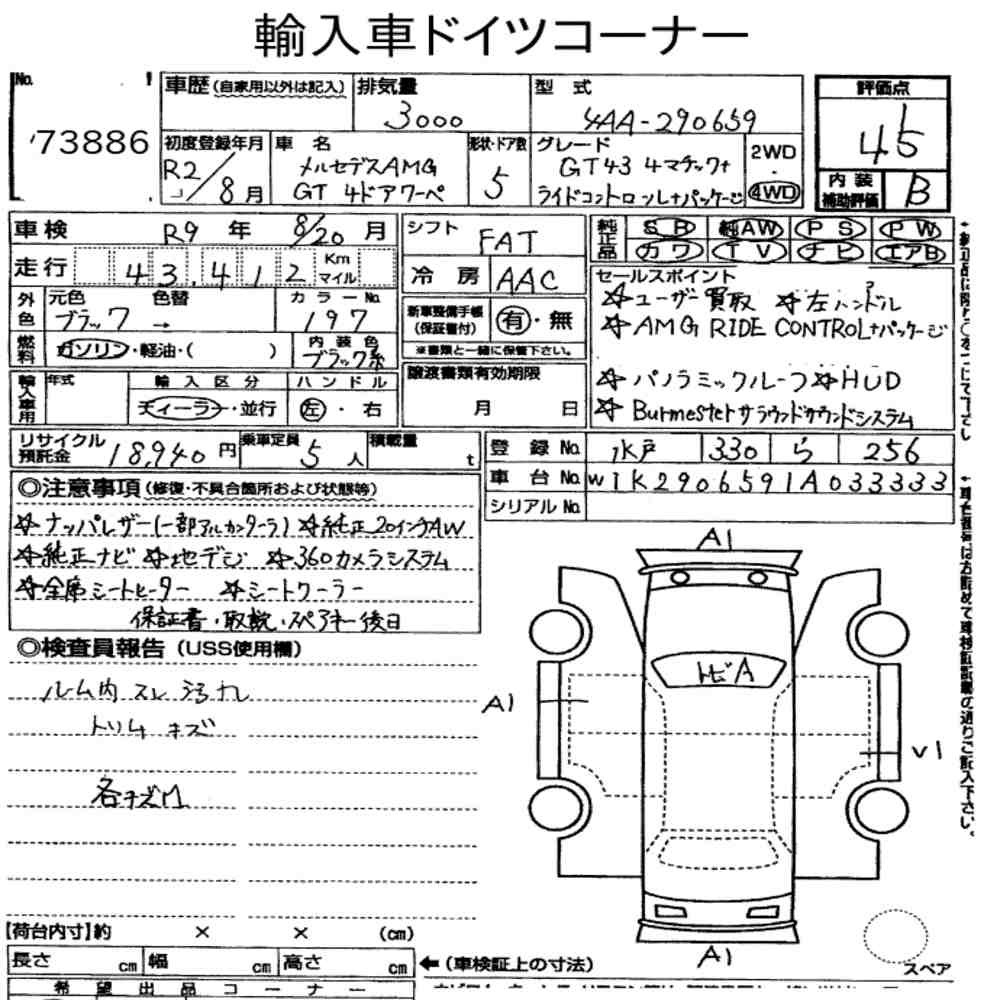 輸入車ドイツコーナー
No.
73886
車歴(自家用以外は記入) 排気量 3000 型式 4AA-290659
初度登録年月 R2/8月 車名 メルセデスAMG GT 4ドアクーペ 形状・ドア数 5 グレード GT43 4マチック+ ライドコントロール+パッケージ 2WD・4WD
評価点 4.5
内装補助評価 B
車検 R9年 8/20月
走行 43,412 Km マイル
シフト FAT
冷房 AAC
純正品 SR 純AW PS PW
カワ TV ナビ エアB
外色 元色 ブラック 色替 → カラーNo. 197
燃料 ガソリン・軽油・( ) 内装色 ブラック系
新車整備手帳(保証書付) 有・無
※書類と一緒に保管下さい。
譲渡書類有効期限
月 日
セールスポイント
☆ユーザー買取 ☆左ハンドル
☆AMG RIDE CONTROL+パッケージ
☆パノラミックルーフ ☆HUD
☆Burmesterサラウンドサウンドシステム
輸入車用 年式 輸入区分 ディーラー・並行 ハンドル 左・右
リサイクル預託金 18,940円 乗車定員 5人 積載量 t
登録No. 水戸 330 ら 256
車台No. W1K2906591A033333
シリアルNo.
◎注意事項(修復・不具合箇所および状態等)
☆ナッパレザー(一部アルカンターラ) ☆純正20インチAW
☆純正ナビ ☆地デジ ☆360カメラシステム
☆全席シートヒーター ☆シートクーラー
保証書・取説・スペアキー後日
◎検査員報告(USS使用欄)
ルーム内スレ汚れ
トリムキズ
各キズM
A1
トビA
A1
V1
A1
スペア
【荷台内寸】約 × × (cm)
長さ cm 幅 cm 高さ cm
←(車検証上の寸法)
希望出品コーナー